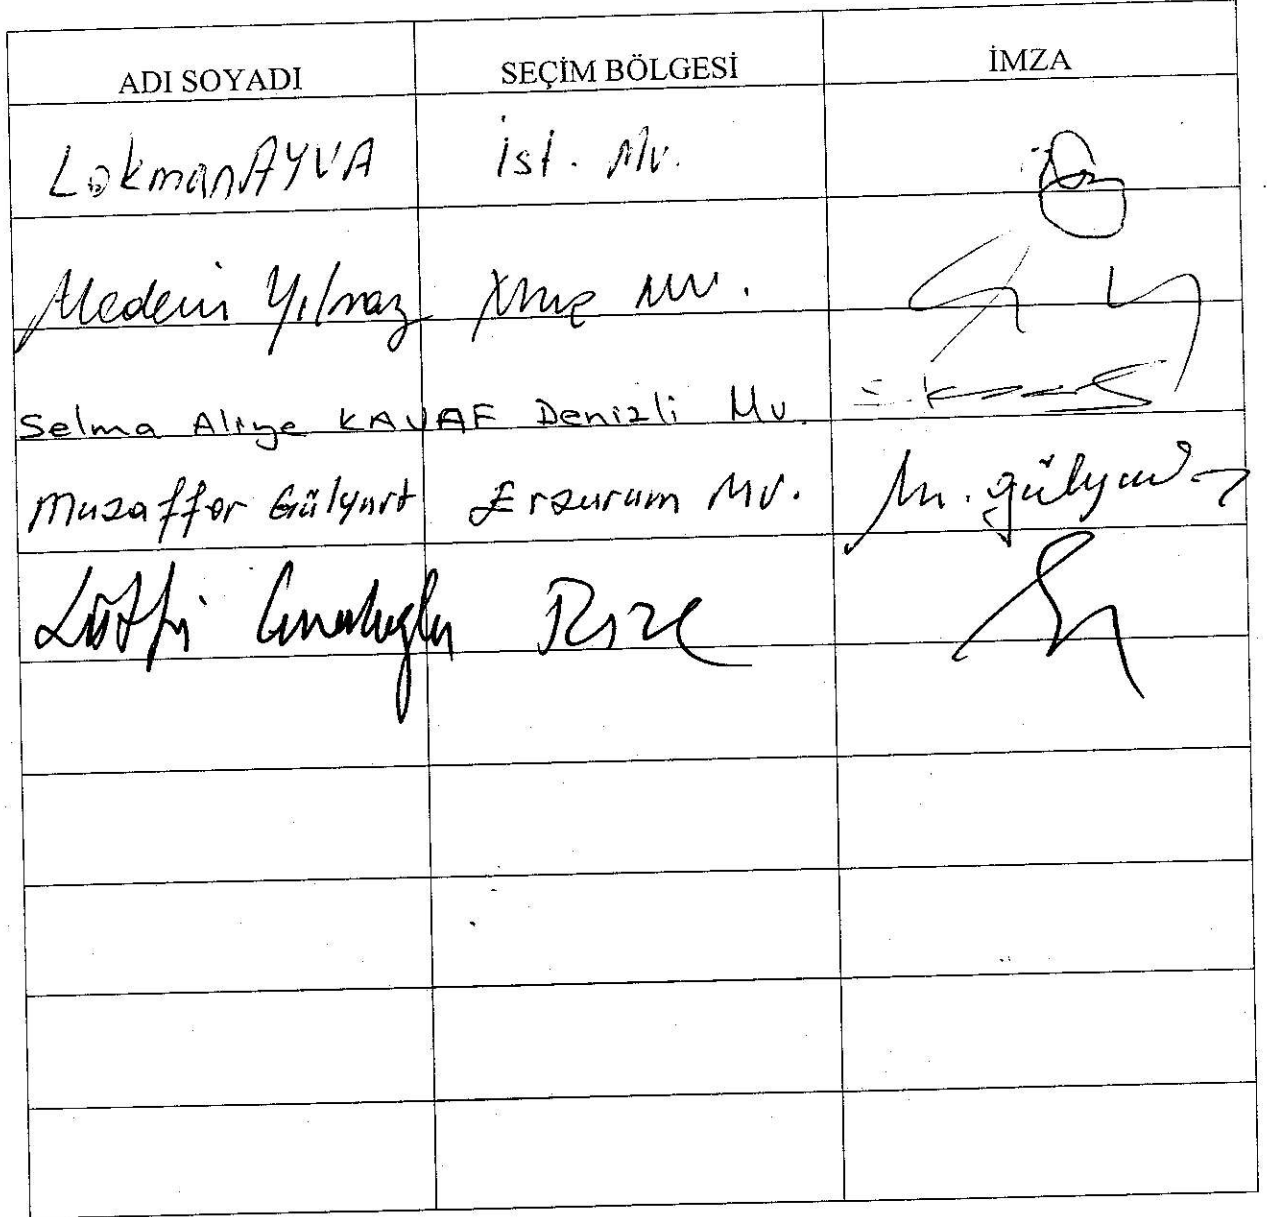 ADI SOYADI SEÇİM BÖLGESİ İMZA
Lokman AYVA İst. Mv.
Medeni Yılmaz Muş Mv.
Selma Aliye KAVAF Denizli Mv. S. Kavaf
Muzaffer Gülyurt Erzurum Mv. M. Gülyurt
Lütfi Rize